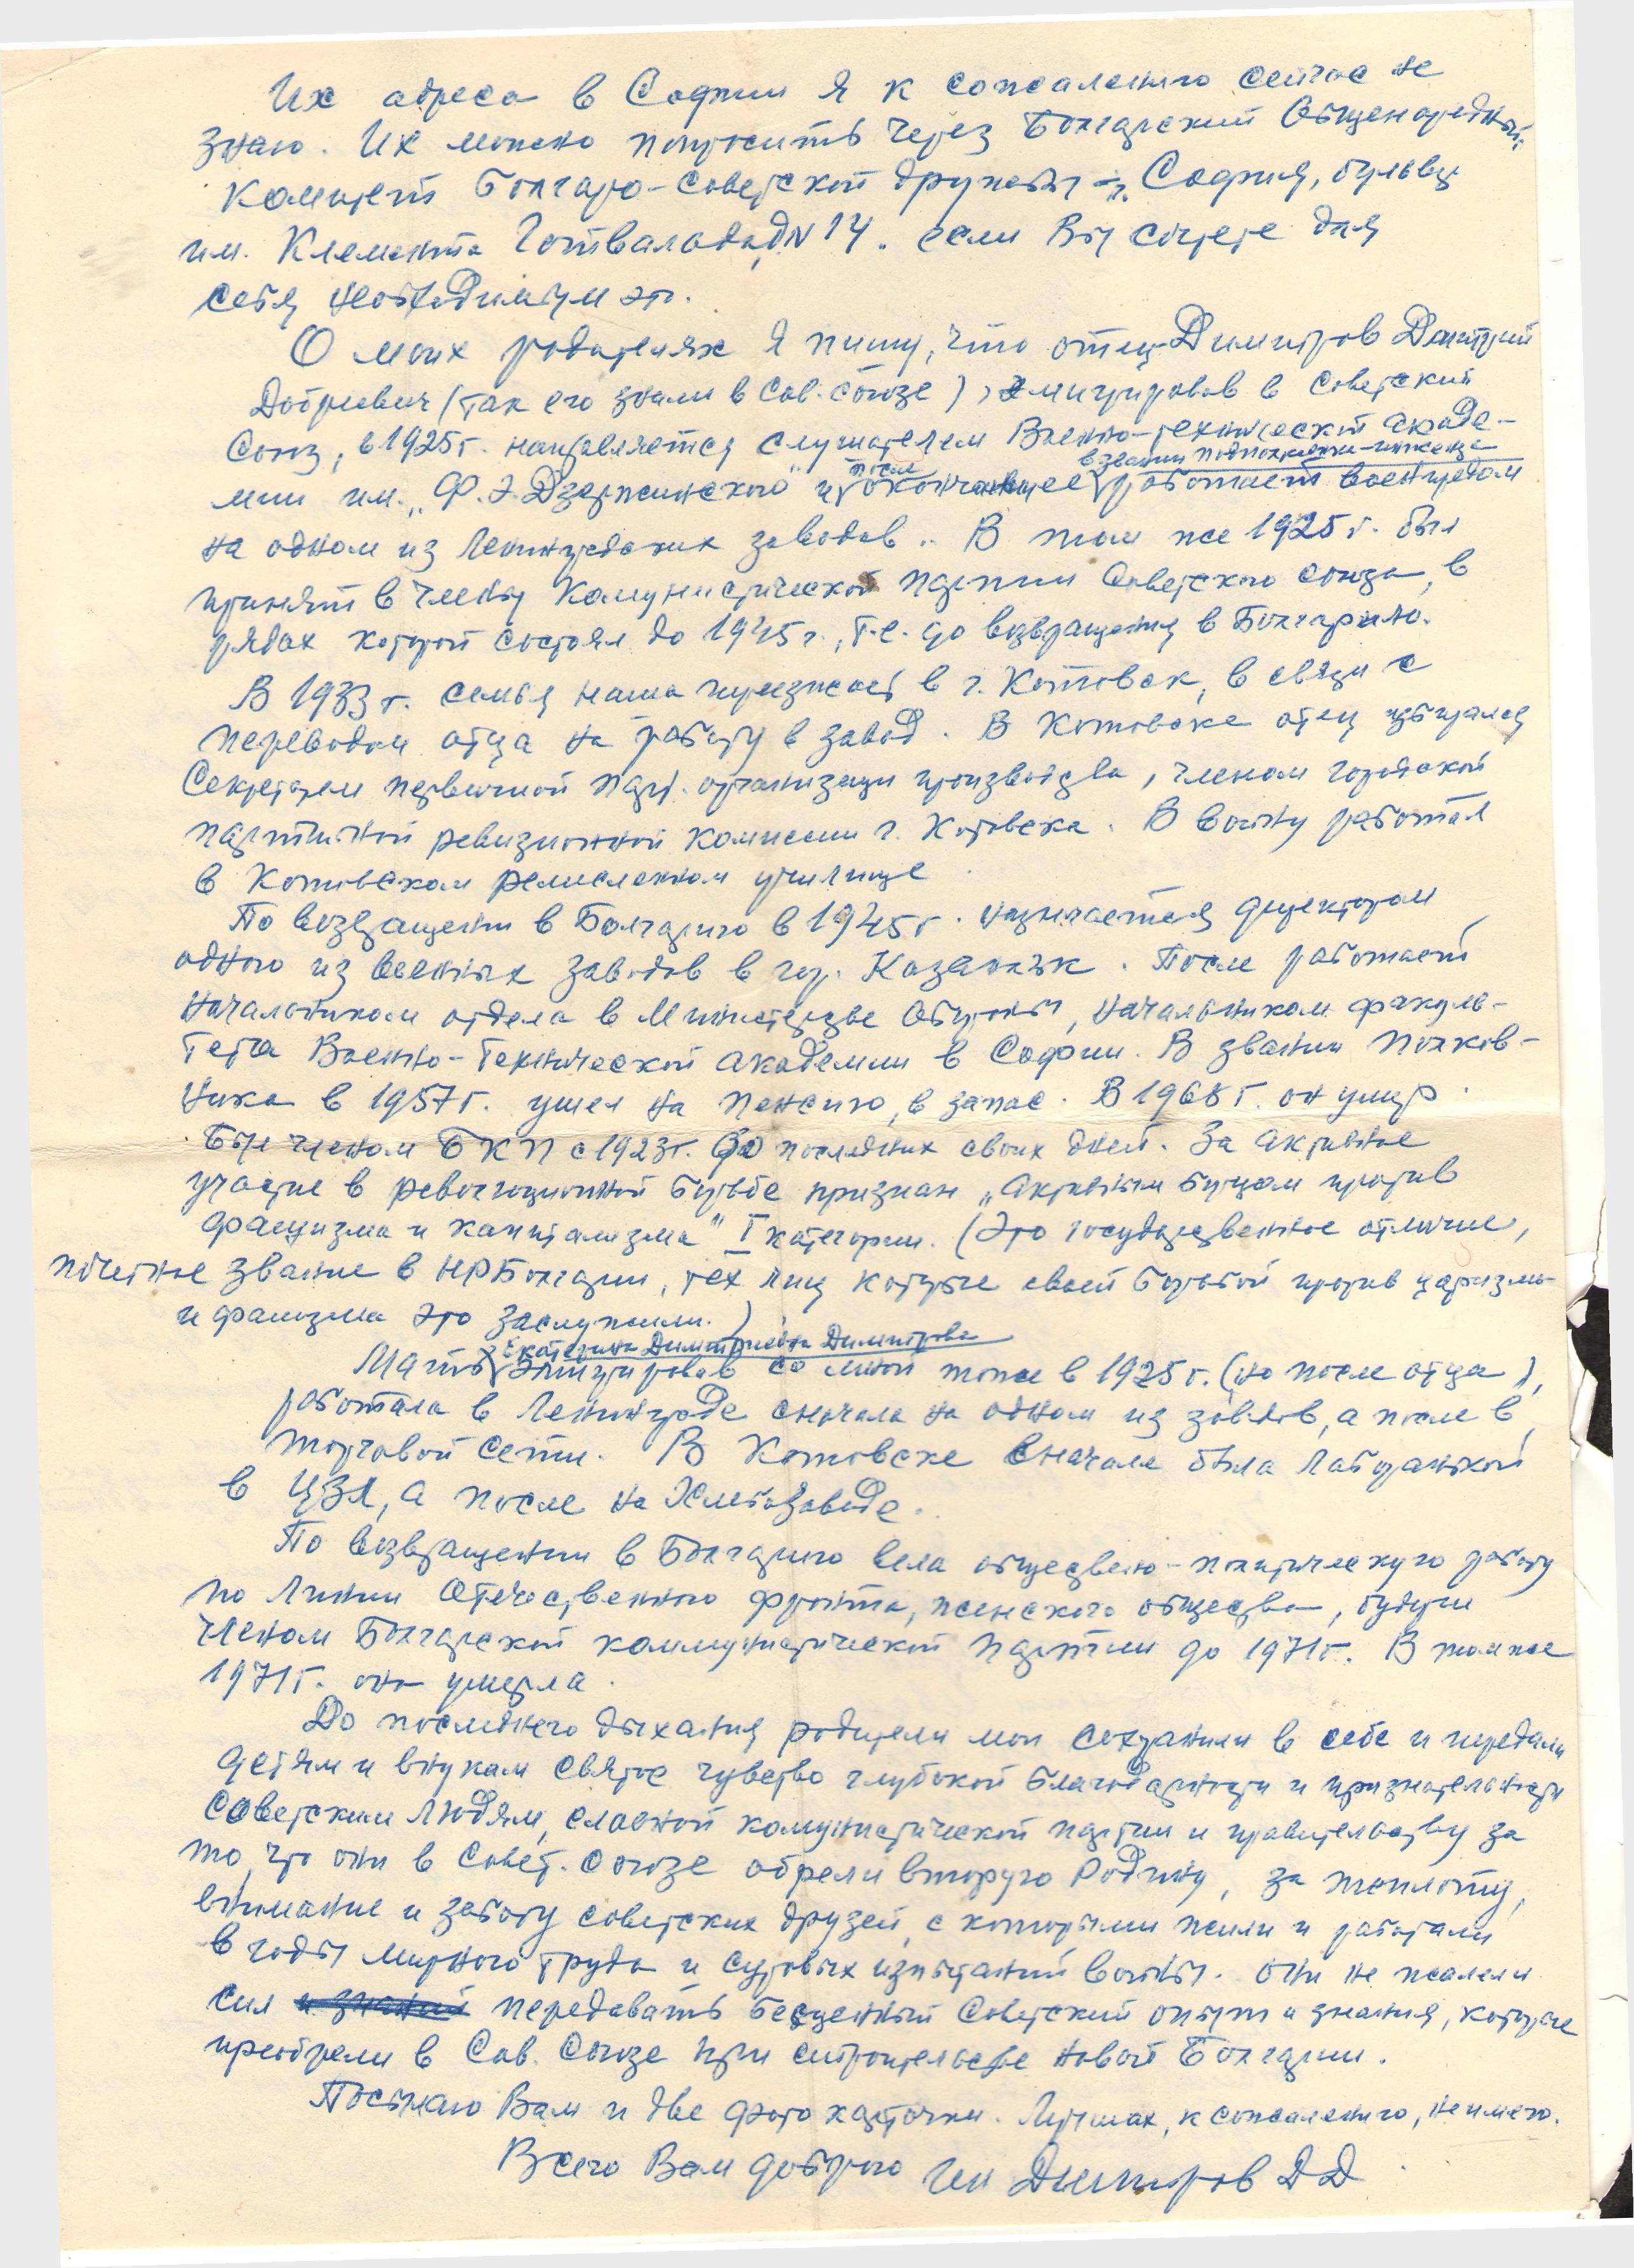 Их адреса в Софии я к сожалению сейчас не
знаю. Их можно попросить через Болгарский Общенародный
комитет Болгаро-Советской дружбы – София, бульвар
им. Клемента Готвальда, N 14. если Вы сочтете для
себя необходимым это.
О моих родителях я пишу, что отец Димитров Дмитрий
Добриевич (так его звали в Сов. Союзе), эмигрировав в Советский
Союз, в 1925 г. направляется слушателем Военно-технической акаде-
мии им. „Ф. Э. Дзержинского" и после окончания ее в звании подполковника-инженера работает военпредом
на одном из Ленинградских заводов. В том же 1925 г. был
принят в члены Комунистической партии Советского Союза, в
рядах которой состоял до 1945 г., т.е. до возвращения в Болгарию.
В 1933 г. семья наша приезжает в г. Котовск, в связи с
переводом отца на работу в завод. В Котовске отец избирался
Секретарем первичной парт. организаци производства, членом городской
партийной ревизионной комиссии г. Котовска. В войну работал
в Котовском ремисленном училище.
По возвращении в Болгарию в 1945 г. назначается директором
одного из военных заводов в гор. Казанлък. После работает
начальником отдела в Министерстве Обороны, начальником факуль-
тета Военно-Технической академии в Софии. В звании полков-
ника в 1957 г. ушел на пенсию, в запас. В 1968 г. он умер.
Был членом БКП с 1923 г. до последних своих дней. За активное
участие в революционной борьбе признан „активным борцом против
фашизма и капитализма" I категории. (Это государственное отличие,
почетное звание в НРБолгарии, тех лиц которые своей борьбой против царизма
и фашизма это заслужили.)
Мать Екатерина Димитриевна Димитрова эмигрировав со мной тоже в 1925 г. (но после отца),
работала в Ленинграде сначала на одном из заводов, а после в
торговой сети. В Котовске сначала была лаборанткой
в ЦЗЛ, а после на Хлебозаводе.
По возвращении в Болгарию вела обществено-политическую работу
по линии Отечественного фронта, женского общества, будучи
членом Болгарской коммунистической партии до 1971 г. В том же
1971 г. она умерла.
До последнего дыхания родители мои сохранили в себе и передали
детям и внукам святое чувство глубокой благодарности и признательности
Советским людям, славной комунистической партии и правительству за
то, что они в Совет. Союзе обрели вторую Родину, за теплоту,
внимание и заботу советских друзей, с которыми жили и работали
в годы мирного труда и суровых испытаний войны. Они не жалели
сил и знаний передавать бесценный Советский опыт и знания, которые
приобрели в Сов. Союзе при строительстве новой Болгарии.
Посылаю Вам и две фото карточки. Лучших, к сожалению, не имею.
Всего Вам доброго Ген Димитров Д Д